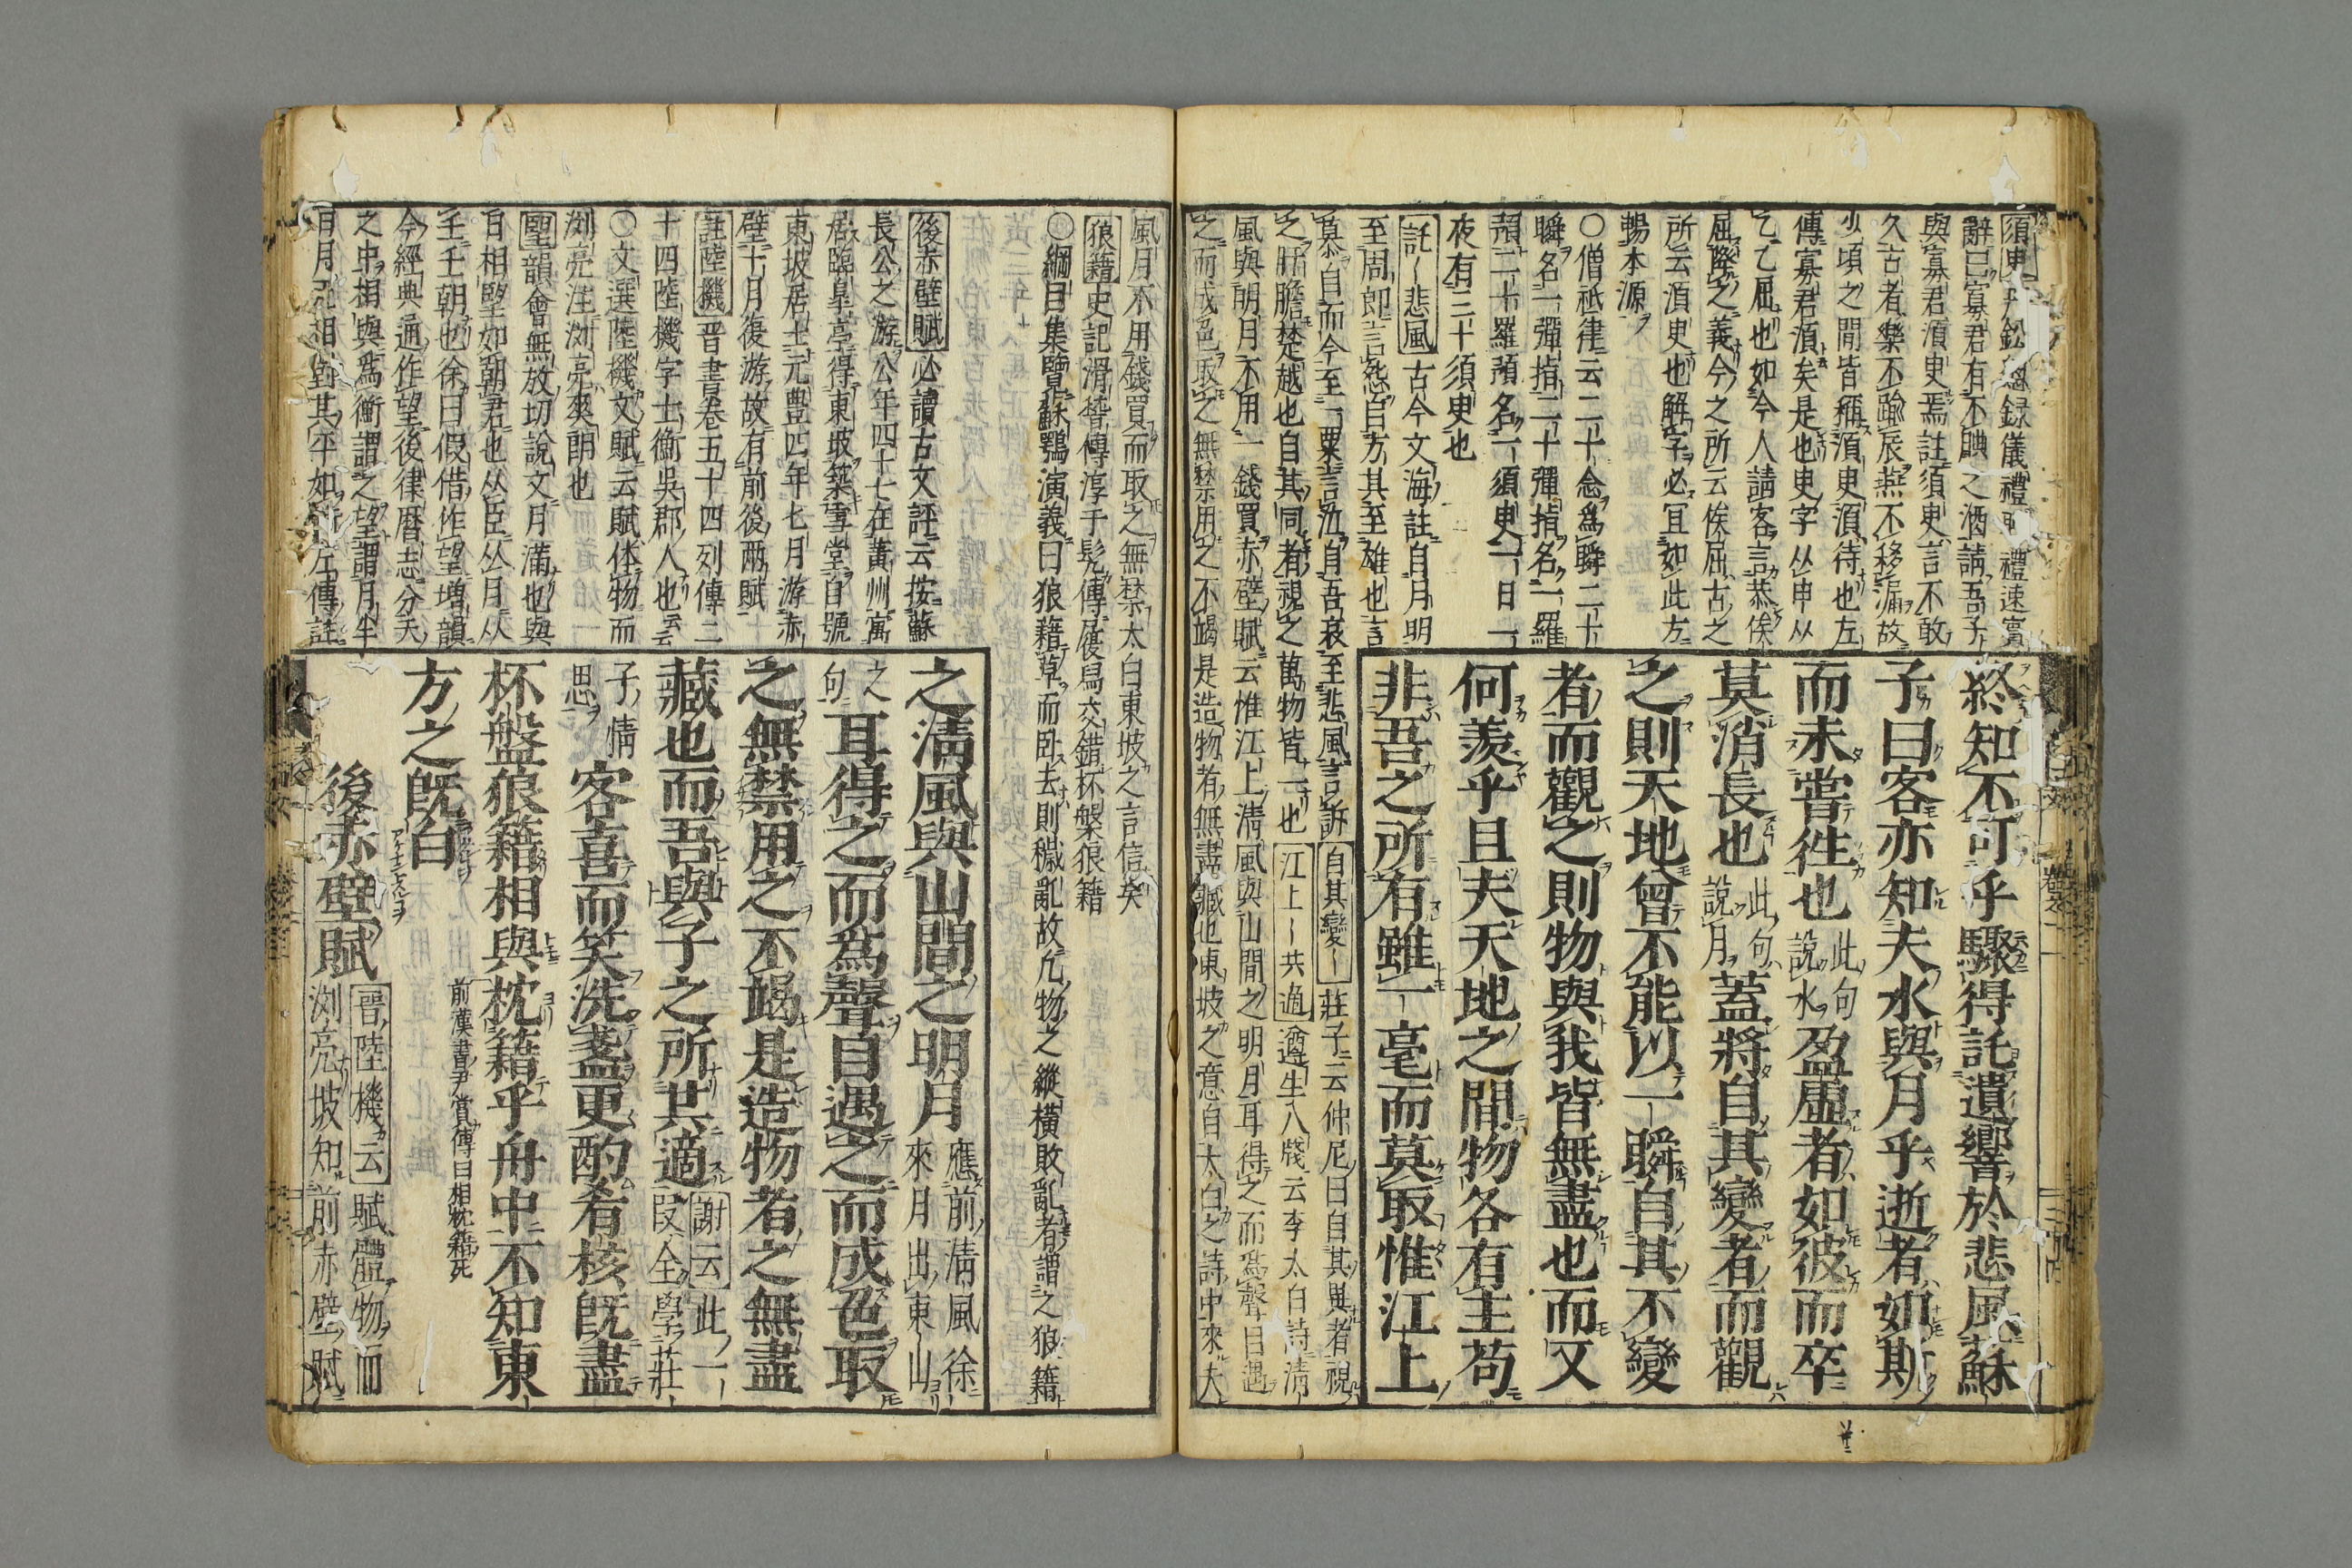 辭曰寡君有不腆之酒請吾子
與寡君須臾焉註須臾言不敢
久古者樂不踰辰燕不移漏故
少頃之間皆稱須臾須待也左
傳寡君須矣是也臾字从申从
乙乙屈也如今人請客言恭俟
屈降之義今之所云俟屈古之
所云須臾也解字必宜如此方
暢本源
〇僧祗律云二十念爲瞬二十
瞬名一彈指二十彈指名一羅
預二十羅預名一須臾一日一
夜有三十須臾也
託〡悲風古今文海註自月明
至周郎言怨自方其至雄也言
慕自而今至一粟言泣自吾哀至悲風言訴
自其變〡莊子云仲尼曰自其異者視
之肝膽楚越也自其同者視之萬物皆一也
江上〡共適遵生八牋云李太白詩清
風與明月不用一錢買赤壁賦云惟江上清風與山間之明月耳得之而爲聲目遇
之而成色取之無禁用之不竭是造物者無盡藏也東坡之意自太白之詩中來夫
終知不可乎驟得託遺響於悲風蘇
子曰客亦知夫水與月乎逝者如斯
而未嘗往也此句說水盈虛者如彼而卒
莫消長也此句說月蓋將自其變者而觀
之則天地曾不能以一瞬自其不變
者而觀之則物與我皆無盡也而又
何羨乎且夫天地之間物各有主苟
非吾之所有雖一毫而莫取惟江上
風月不用錢買而取之無禁太白東坡之言信矣
狼籍史記滑稽傳淳于髡傳履舄交錯杯槃狼籍
〇綱目集覽蘇鶚演義曰狼籍草而卧去則穢亂故凡物之縱橫敗亂者謂之狼籍
後赤壁賦必讀古文評云按蘇
長公之游公年四十七在黃州寓
居臨臯亭得東坡築雪堂自號
東坡居士元豊四年七月游赤
壁十月復游故有前後兩賦
註陸機晋書卷五十四列傳二
十四陸機字士衡吳郡人也云云
〇文選陸機文賦云賦体物而
瀏亮注瀏亮爽朗也
朢韻會無放切說文月滿也與
日相朢如朝君也从臣从月从
壬壬朝也徐曰假借作望增韻
今經典通作望後律曆志分天
之中相與爲衡謂之望謂月半
之淸風與山間之明月應前清風徐來月出東山
之句耳得之而爲聲目遇之而成色取
之無禁用之不竭是造物者之無盡
藏也而吾與子之所共適謝云此一段全學莊
子情思客喜而笑洗盞更酌肴核旣盡
杯盤狼籍相與枕籍乎舟中不知東
方之旣白
前漢書尹賞傳曰相枕籍死
後赤壁賦晉陸機云賦體物而瀏亮坡知前赤壁賦